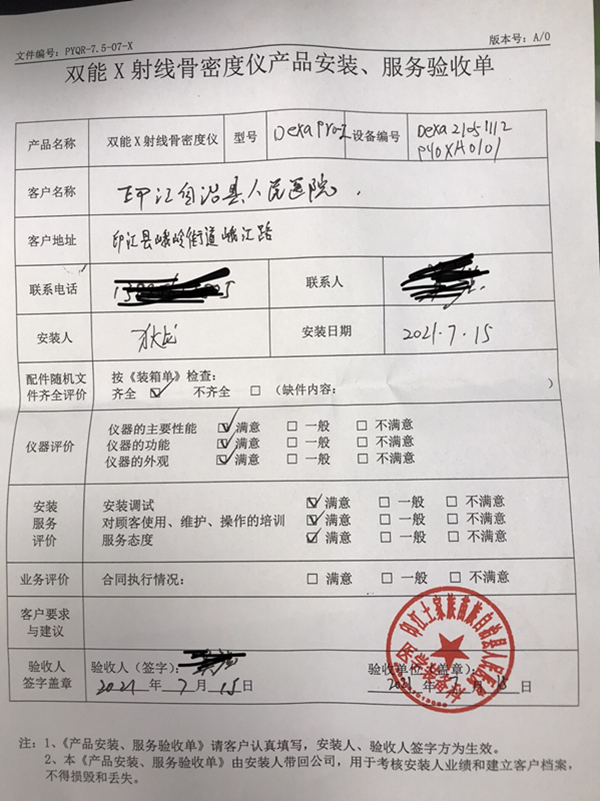 文件编号: PYQR-7.5-07-X
版本号: A/0
双能 X 射线骨密度仪产品安装、服务验收单
产品名称 双能 X 射线骨密度仪 型号 Dexa Pro-I 设备编号 Dexa21051112
PY0XA0101
客户名称 印江自治县人民医院.
客户地址 印江县峨岭街道峨江路
联系电话 联系人
安装人 安装日期 2021.7.15
配件随机文件齐全评价 按《装箱单》检查:
齐全 ☑ 不齐全 □ (缺件内容: )
仪器评价
仪器的主要性能 ☑ 满意 □ 一般 □ 不满意
仪器的功能 ☑ 满意 □ 一般 □ 不满意
仪器的外观 ☑ 满意 □ 一般 □ 不满意
安装服务评价
安装调试 ☑ 满意 □ 一般 □ 不满意
对顾客使用、维护、操作的培训 ☑ 满意 □ 一般 □ 不满意
服务态度 ☑ 满意 □ 一般 □ 不满意
业务评价 合同执行情况: □ 满意 □ 一般 □ 不满意
客户要求与建议
印江土家族苗族自治县人民医院
医学装备科
验收人签字盖章 验收人(签字): 验收单位(盖章):
2021 年 7 月 15 日 2021 年 7 月 15 日
注: 1、《产品安装、服务验收单》请客户认真填写，安装人、验收人签字方为生效。
2、本《产品安装、服务验收单》由安装人带回公司，用于考核安装人业绩和建立客户档案，
不得损毁和丢失。